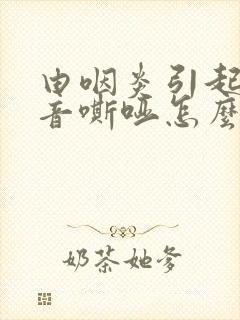 由咽炎引起
音嘶哑怎麼
奶茶她爹